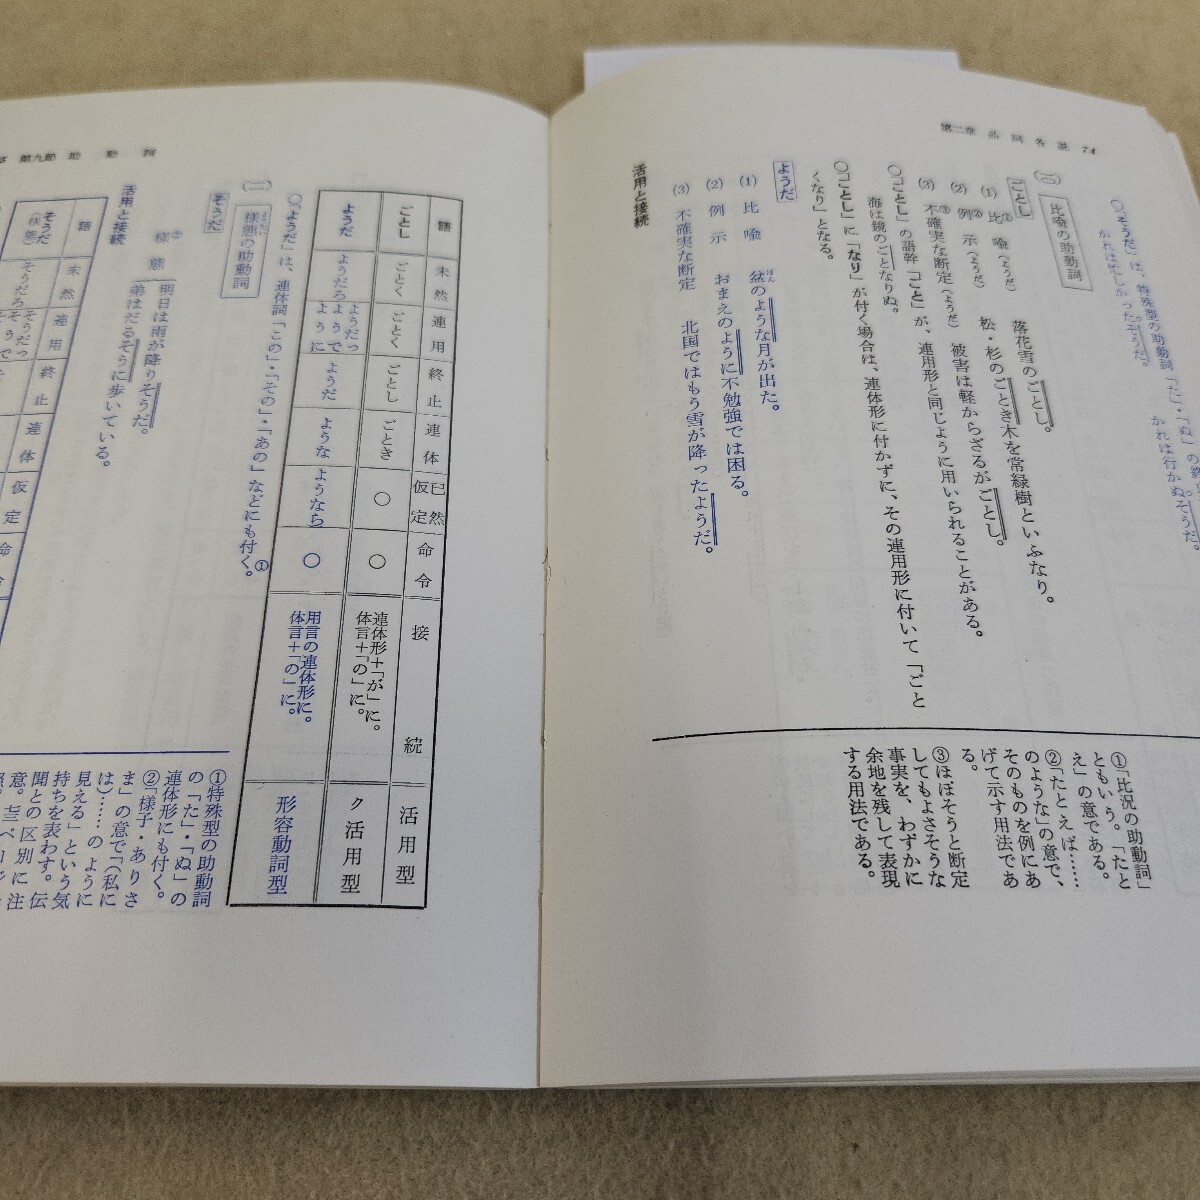 第二章 品詞各説 74
○「そうだ」は、特殊型の助動詞「た」・「ぬ」の終
かれは忙しかったそうだ。
かれは行かぬそうだ。
(二) 比喩の助動詞
ごとし
(1) 比喩①(ようだ) 落花雪のごとし。
(2) 例示②(ようだ) 松・杉のごとき木を常緑樹といふなり。
(3) 不確実な断定③(ようだ) 被害は軽からざるがごとし。
○「ごとし」の語幹「ごと」が、連用形と同じように用いられることがある。
海は鏡のごとなりぬ。
○「ごとし」に「なり」が付く場合は、連体形に付かずに、その連用形に付いて「ごと
くなり」となる。
ようだ
(1) 比喩 盆のような月が出た。
(2) 例示 おまえのように不勉強では困る。
(3) 不確実な断定 北国ではもう雪が降ったようだ。
活用と接続
①「比況の助動詞」
ともいう。「たと
え」の意である。
②「たとえば……
のような」の意で、
そのものを例にあ
げて示す用法であ
る。
③ほぼそうと断定
してもよさそうな
事実を、わずかに
余地を残して表現
する用法である。
第九節 助動詞
語 未然 連用 終止 連体 已然仮定 命令 接続 活用型
ごとし ごとく ごとく ごとし ごとき ○ ○ 連体形+「が」に。体言+「の」に。 ク活用型
ようだ ようだろ ようだっ ようで ように ようだ ような ようなら ○ 用言の連体形に。体言+「の」に。 形容動詞型
○「ようだ」は、連体詞「この」・「その」・「あの」などにも付く。①
(一) 様態の助動詞
そうだ
様態② 明日は雨が降りそうだ。
弟はだるそうに歩いている。
活用と接続
語 未然 連用 終止 連体 仮定 命令
そうだ(様態) そうだろ そうだっ そうで
①特殊型の助動詞
の「た」・「ぬ」の
連体形にも付く。
②「様子・ありさ
ま」の意で「(私に
は)……のように
見える」という気
持ちを表わす。伝
聞との区別に注